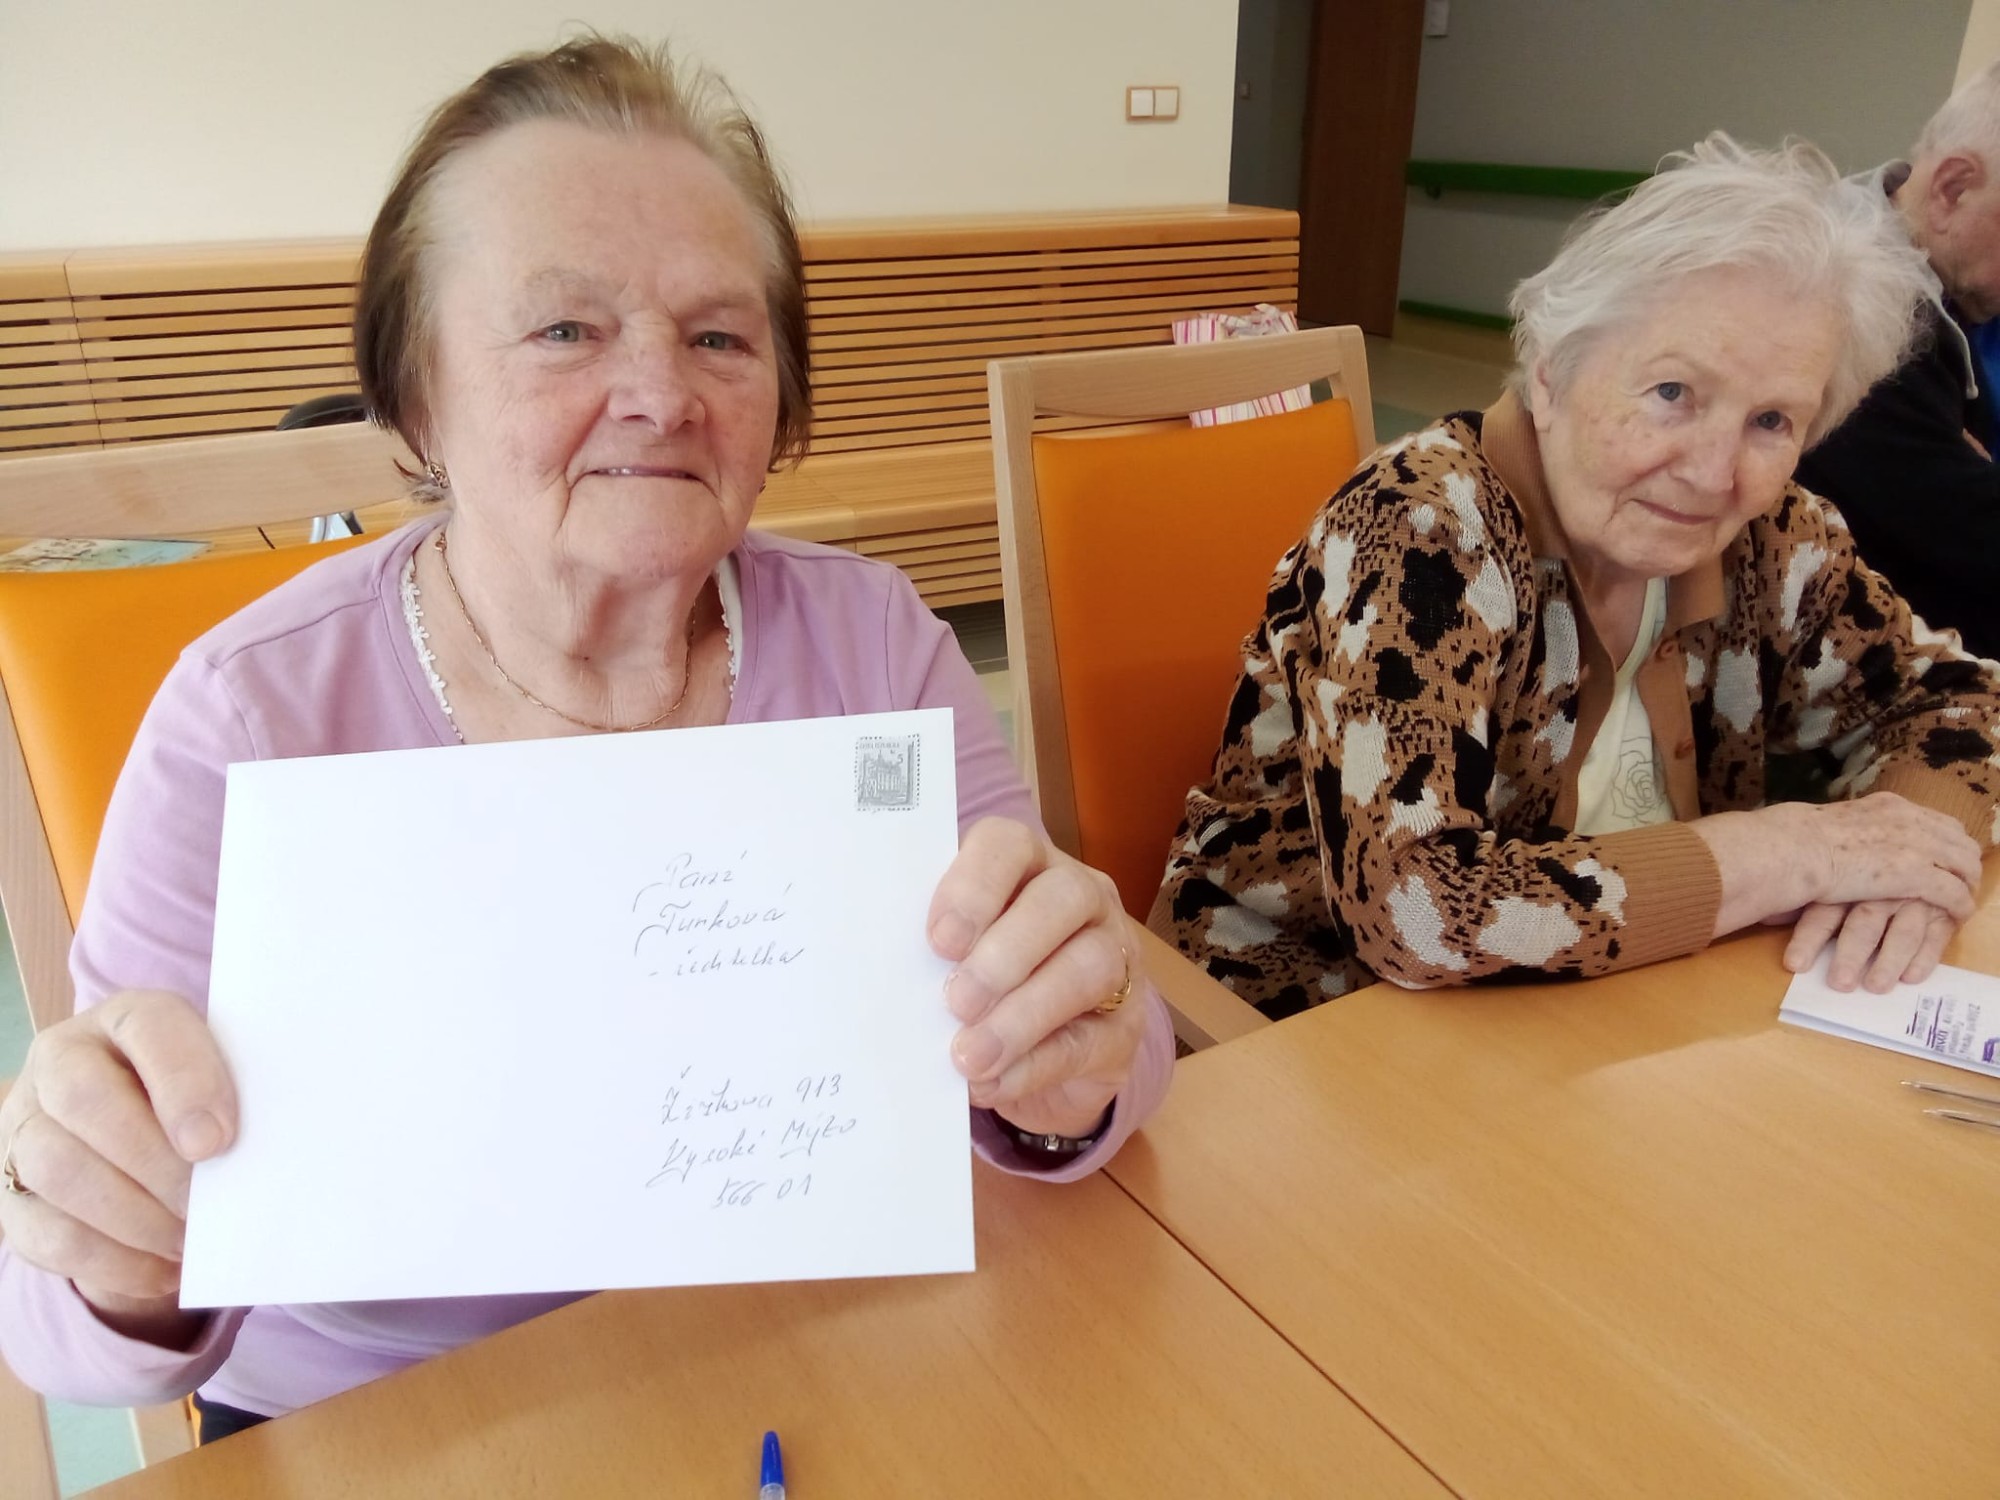 ČESKÁ REPUBLIKA
5
Paní
Turková
- ředitelka
Žižkova 913
Vysoké Mýto
566 01